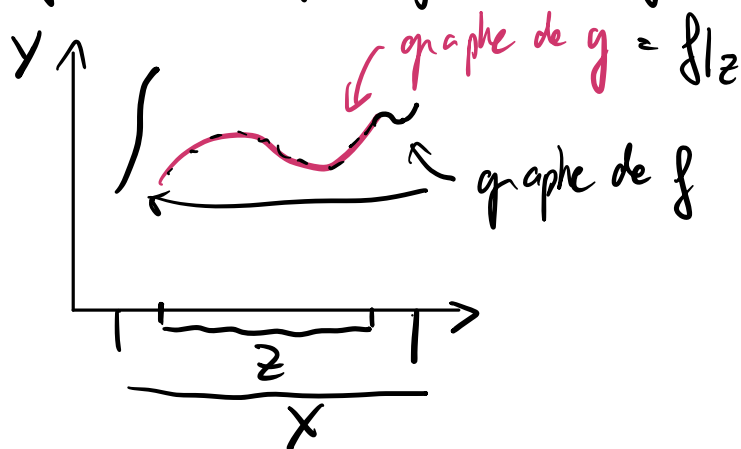 graphe de g = f|z
Y
graphe de f
Z
X